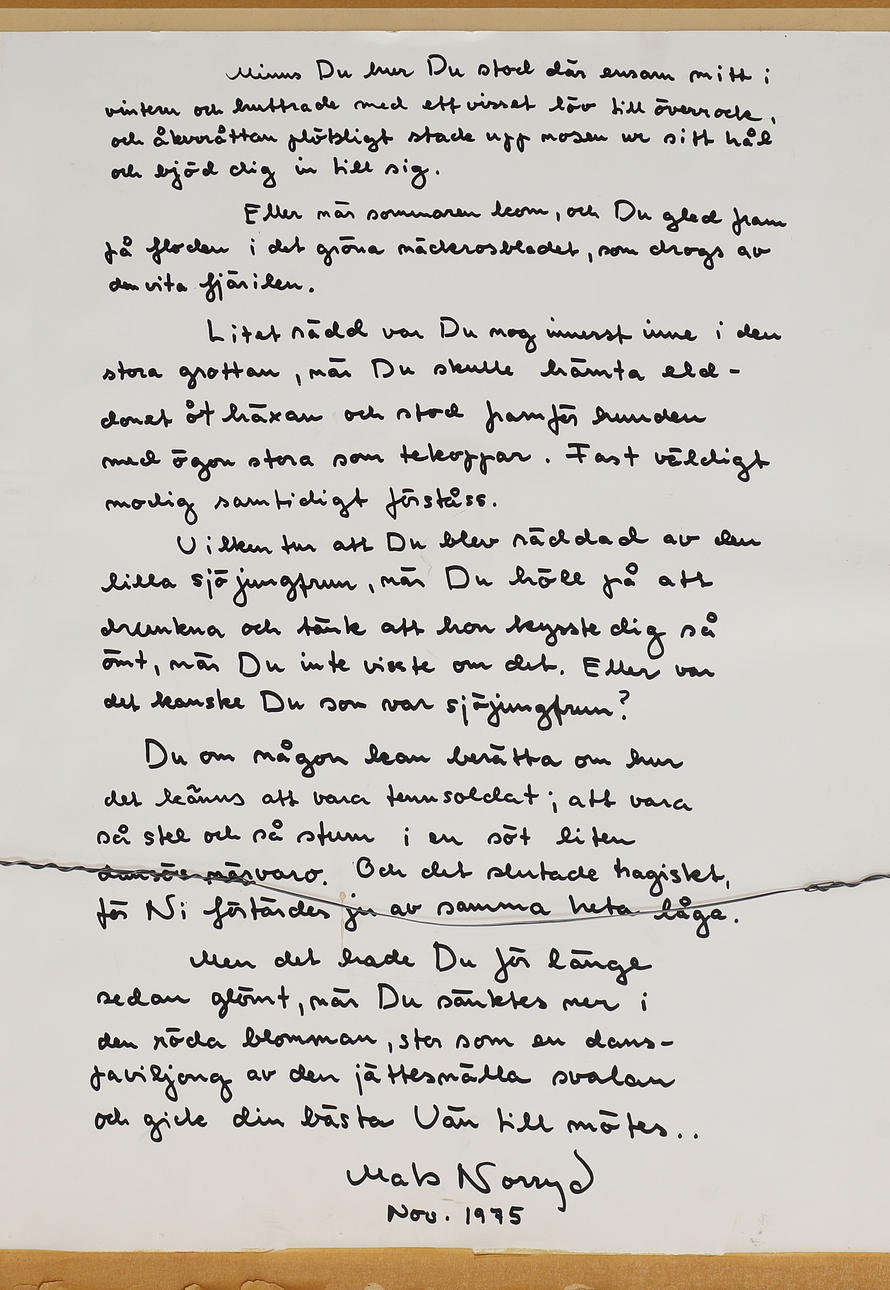 Minns Du hur Du stod där ensam mitt i
vintern och huttrade med ett visset löv till överrock,
och åkerråttan plötsligt stack upp nosen ur sitt hål
och bjöd dig in till sig.
Eller när sommaren kom, och Du gled fram
på floden i det gröna näckrosbladet, som drogs av
den vita fjärilen.
Litet rädd var Du nog innerst inne i den
stora grottan, när Du skulle hämta eld-
donet åt häxan och stod framför hunden
med ögon stora som tekoppar. Fast väldigt
modig samtidigt förståss.
Vilken tur att Du blev räddad av den
lilla sjöjungfrun, när Du höll på att
drunkna och tänk att hon kysste dig så
ömt, när Du inte visste om det. Eller var
det kanske Du som var sjöjungfrun?
Du om någon kan berätta om hur
det känns att vara tennsoldat; att vara
så stel och så stum i en söt liten
dansös närvaro. Och det slutade tragiskt,
för Ni förtärdes ju av samma heta låga.
Men det hade Du för länge
sedan glömt, när Du sänktes ner i
den röda blomman, stor som en dans-
paviljong av den jättesnälla svalan
och gick din bästa Vän till mötes..
Mats Norryd
Nov. 1975